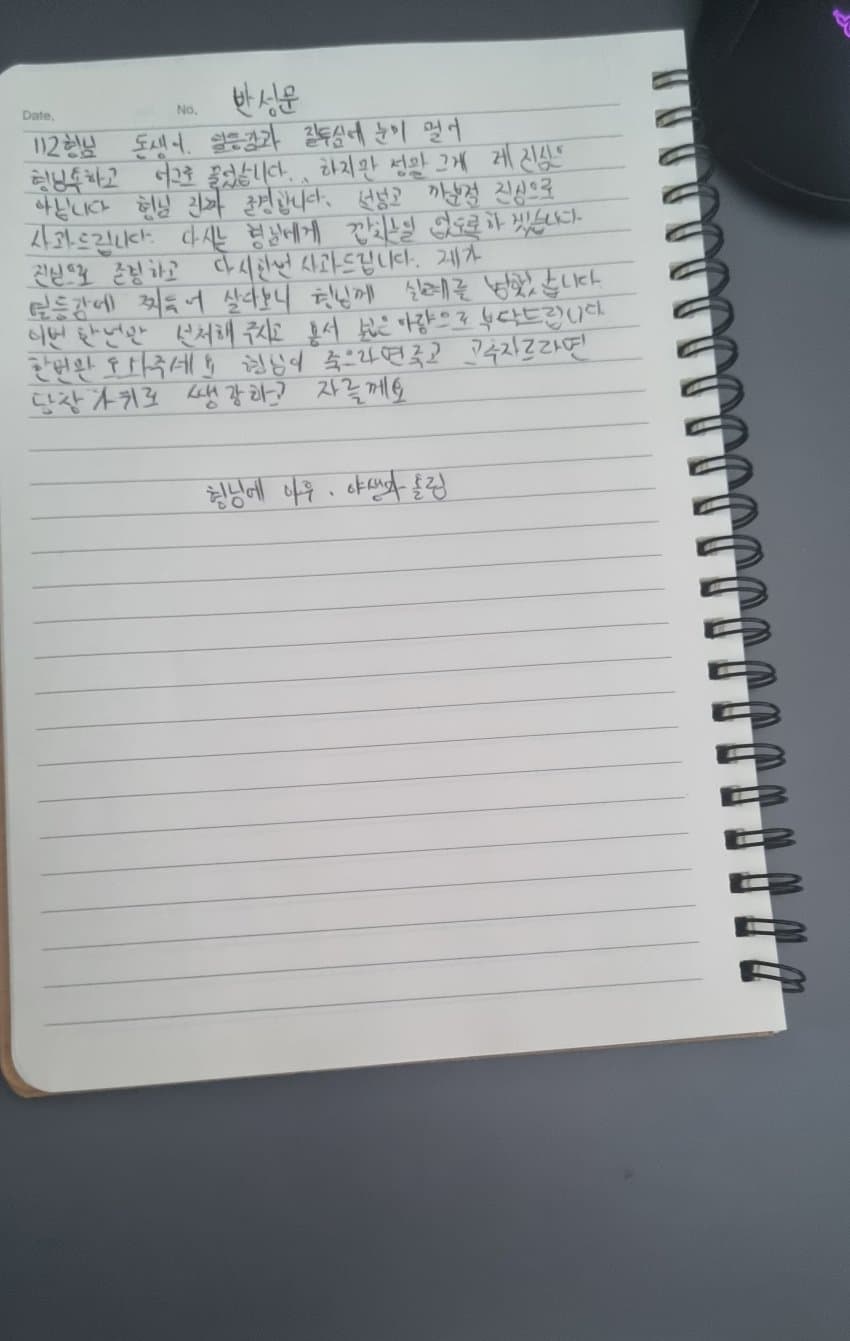 Date,
No,
반성문
112형님 돈생이. 열등감과 질투심에 눈이 멀어
형님욕하고 어그로 끌었습니다.. 하지만 정말 그게 제 진심은
아닙니다 형님 진짜 존경합니다. 선넘고 까분점 진심으로
사과드립니다. 다시는 형님에게 깝치는일 없도록하겠습니다.
진심으로 존경하고 다시한번 사과드립니다. 제가
열등감에 찌들어 살다보니 형님께 실례를 범했습니다.
이번 한번만 선처해 주시고 용서 넓은 아량으로 부탁드립니다
한번만 도와주세요 형님이 죽으라면 죽고 꼬추자르라면
당장 가위로 쌩강하고 자를께요
형님에 아우. 야생마 올림